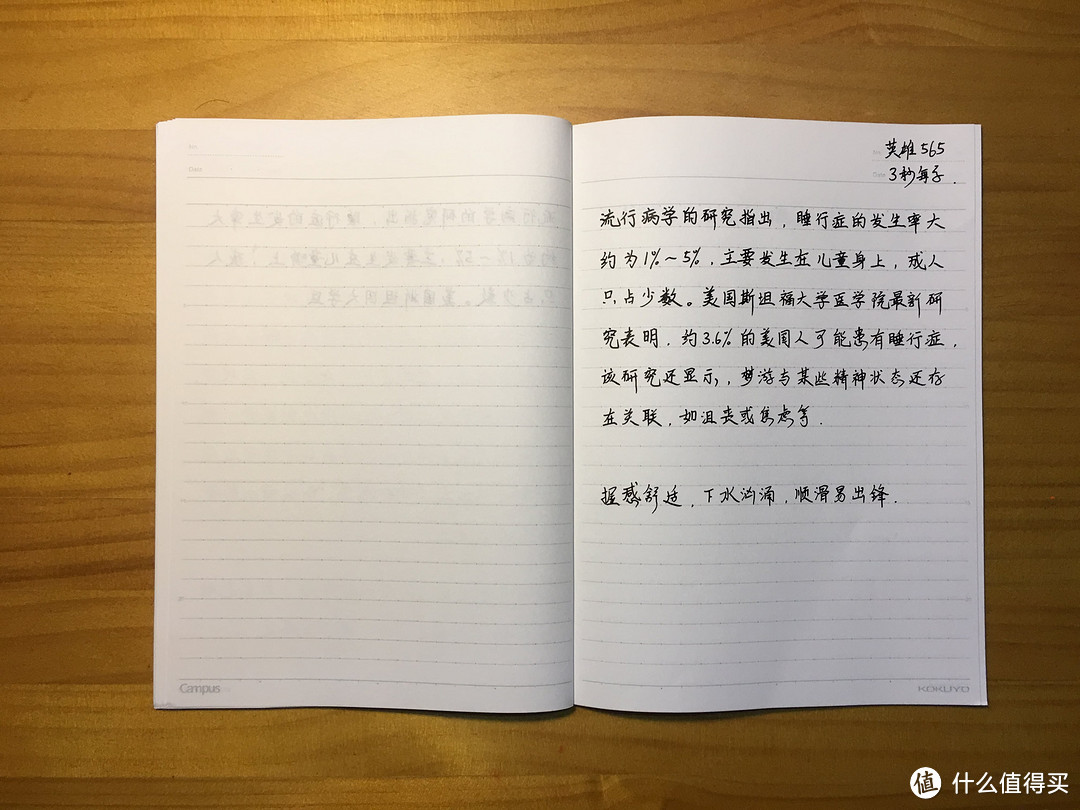 No.
Date
Campus
英雄 565
3秒每字.
流行病学的研究指出，睡行症的发生率大
约为1%～5%，主要发生在儿童身上，成人
只占少数。美国斯坦福大学医学院最新研
究表明，约3.6%的美国人可能患有睡行症，
该研究还显示，梦游与某些精神状态还存
在关联，如沮丧或焦虑等.
握感舒适，下水汹涌，顺滑易出锋.
KOKUYO
值 什么值得买